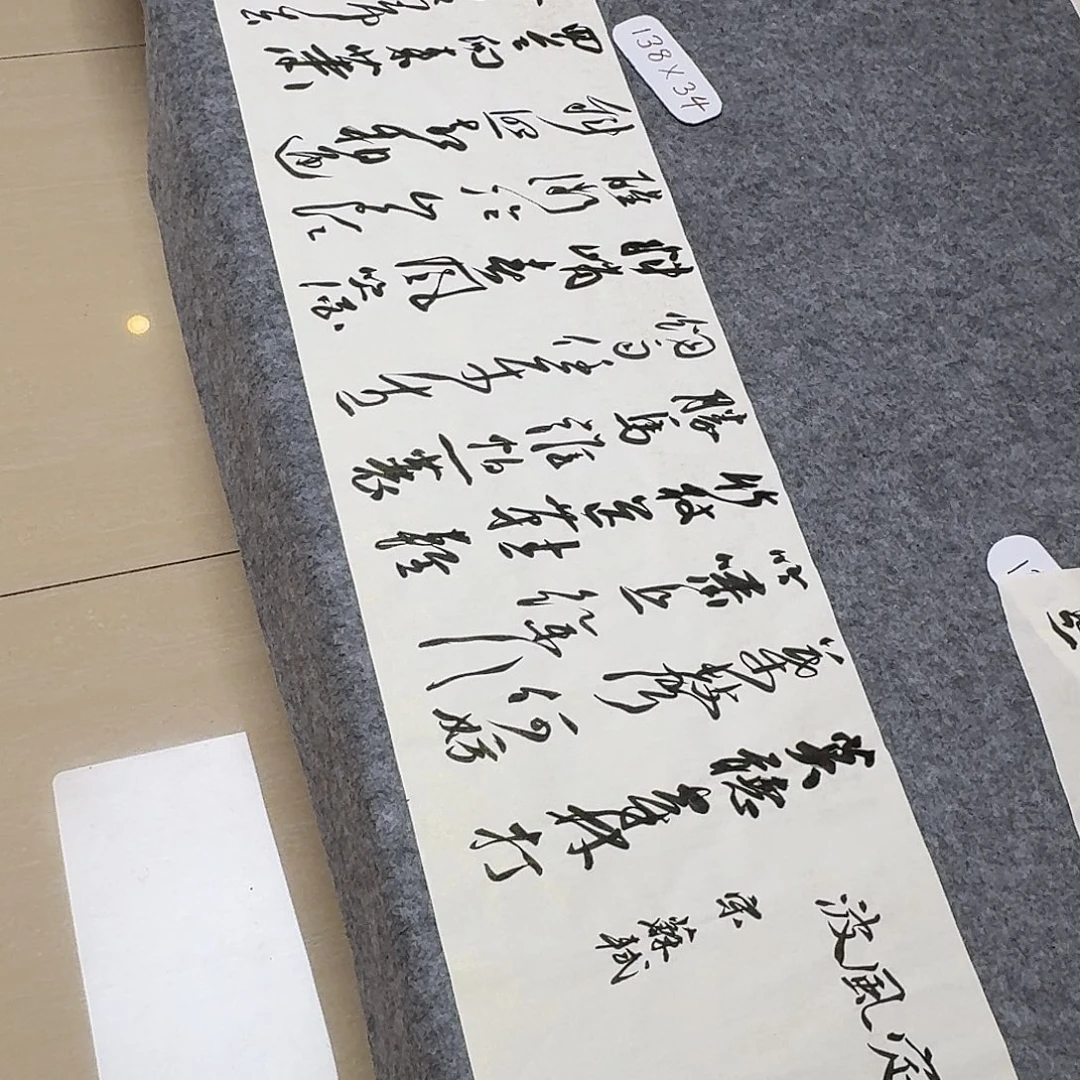 138×34
定風波
宋 蘇軾
莫聽穿林打
葉聲 何妨
吟嘯且徐行
竹杖芒鞋輕
勝馬誰怕一蓑
煙雨任平生
料峭春風吹酒
醒微冷山頭
斜照卻相迎
回首向來蕭瑟